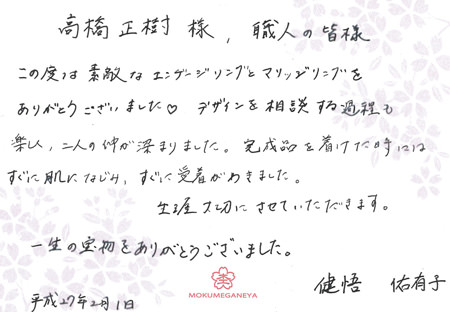 高橋正樹様, 職人の皆様
この度は素敵なエンゲージリングとマリッジリングを
ありがとうございました♡ デザインを相談する過程も
楽しく、二人の仲が深まりました。完成品を着けた時には
すぐに肌になじみ、すぐに愛着がわきました。
生涯大切にさせていただきます。
一生の宝物をありがとうございました。
健悟 佑有子
MOKUMEGANEYA
平成27年2月1日